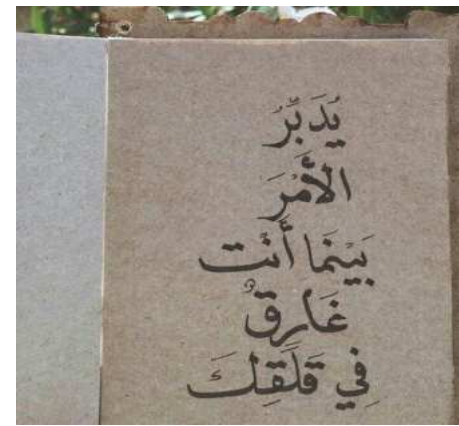 يُدَبِّرُ
الأَمْرَ
بَيْنَمَا أَنْت
غَارِقٌ
فِي قَلَقِكَ